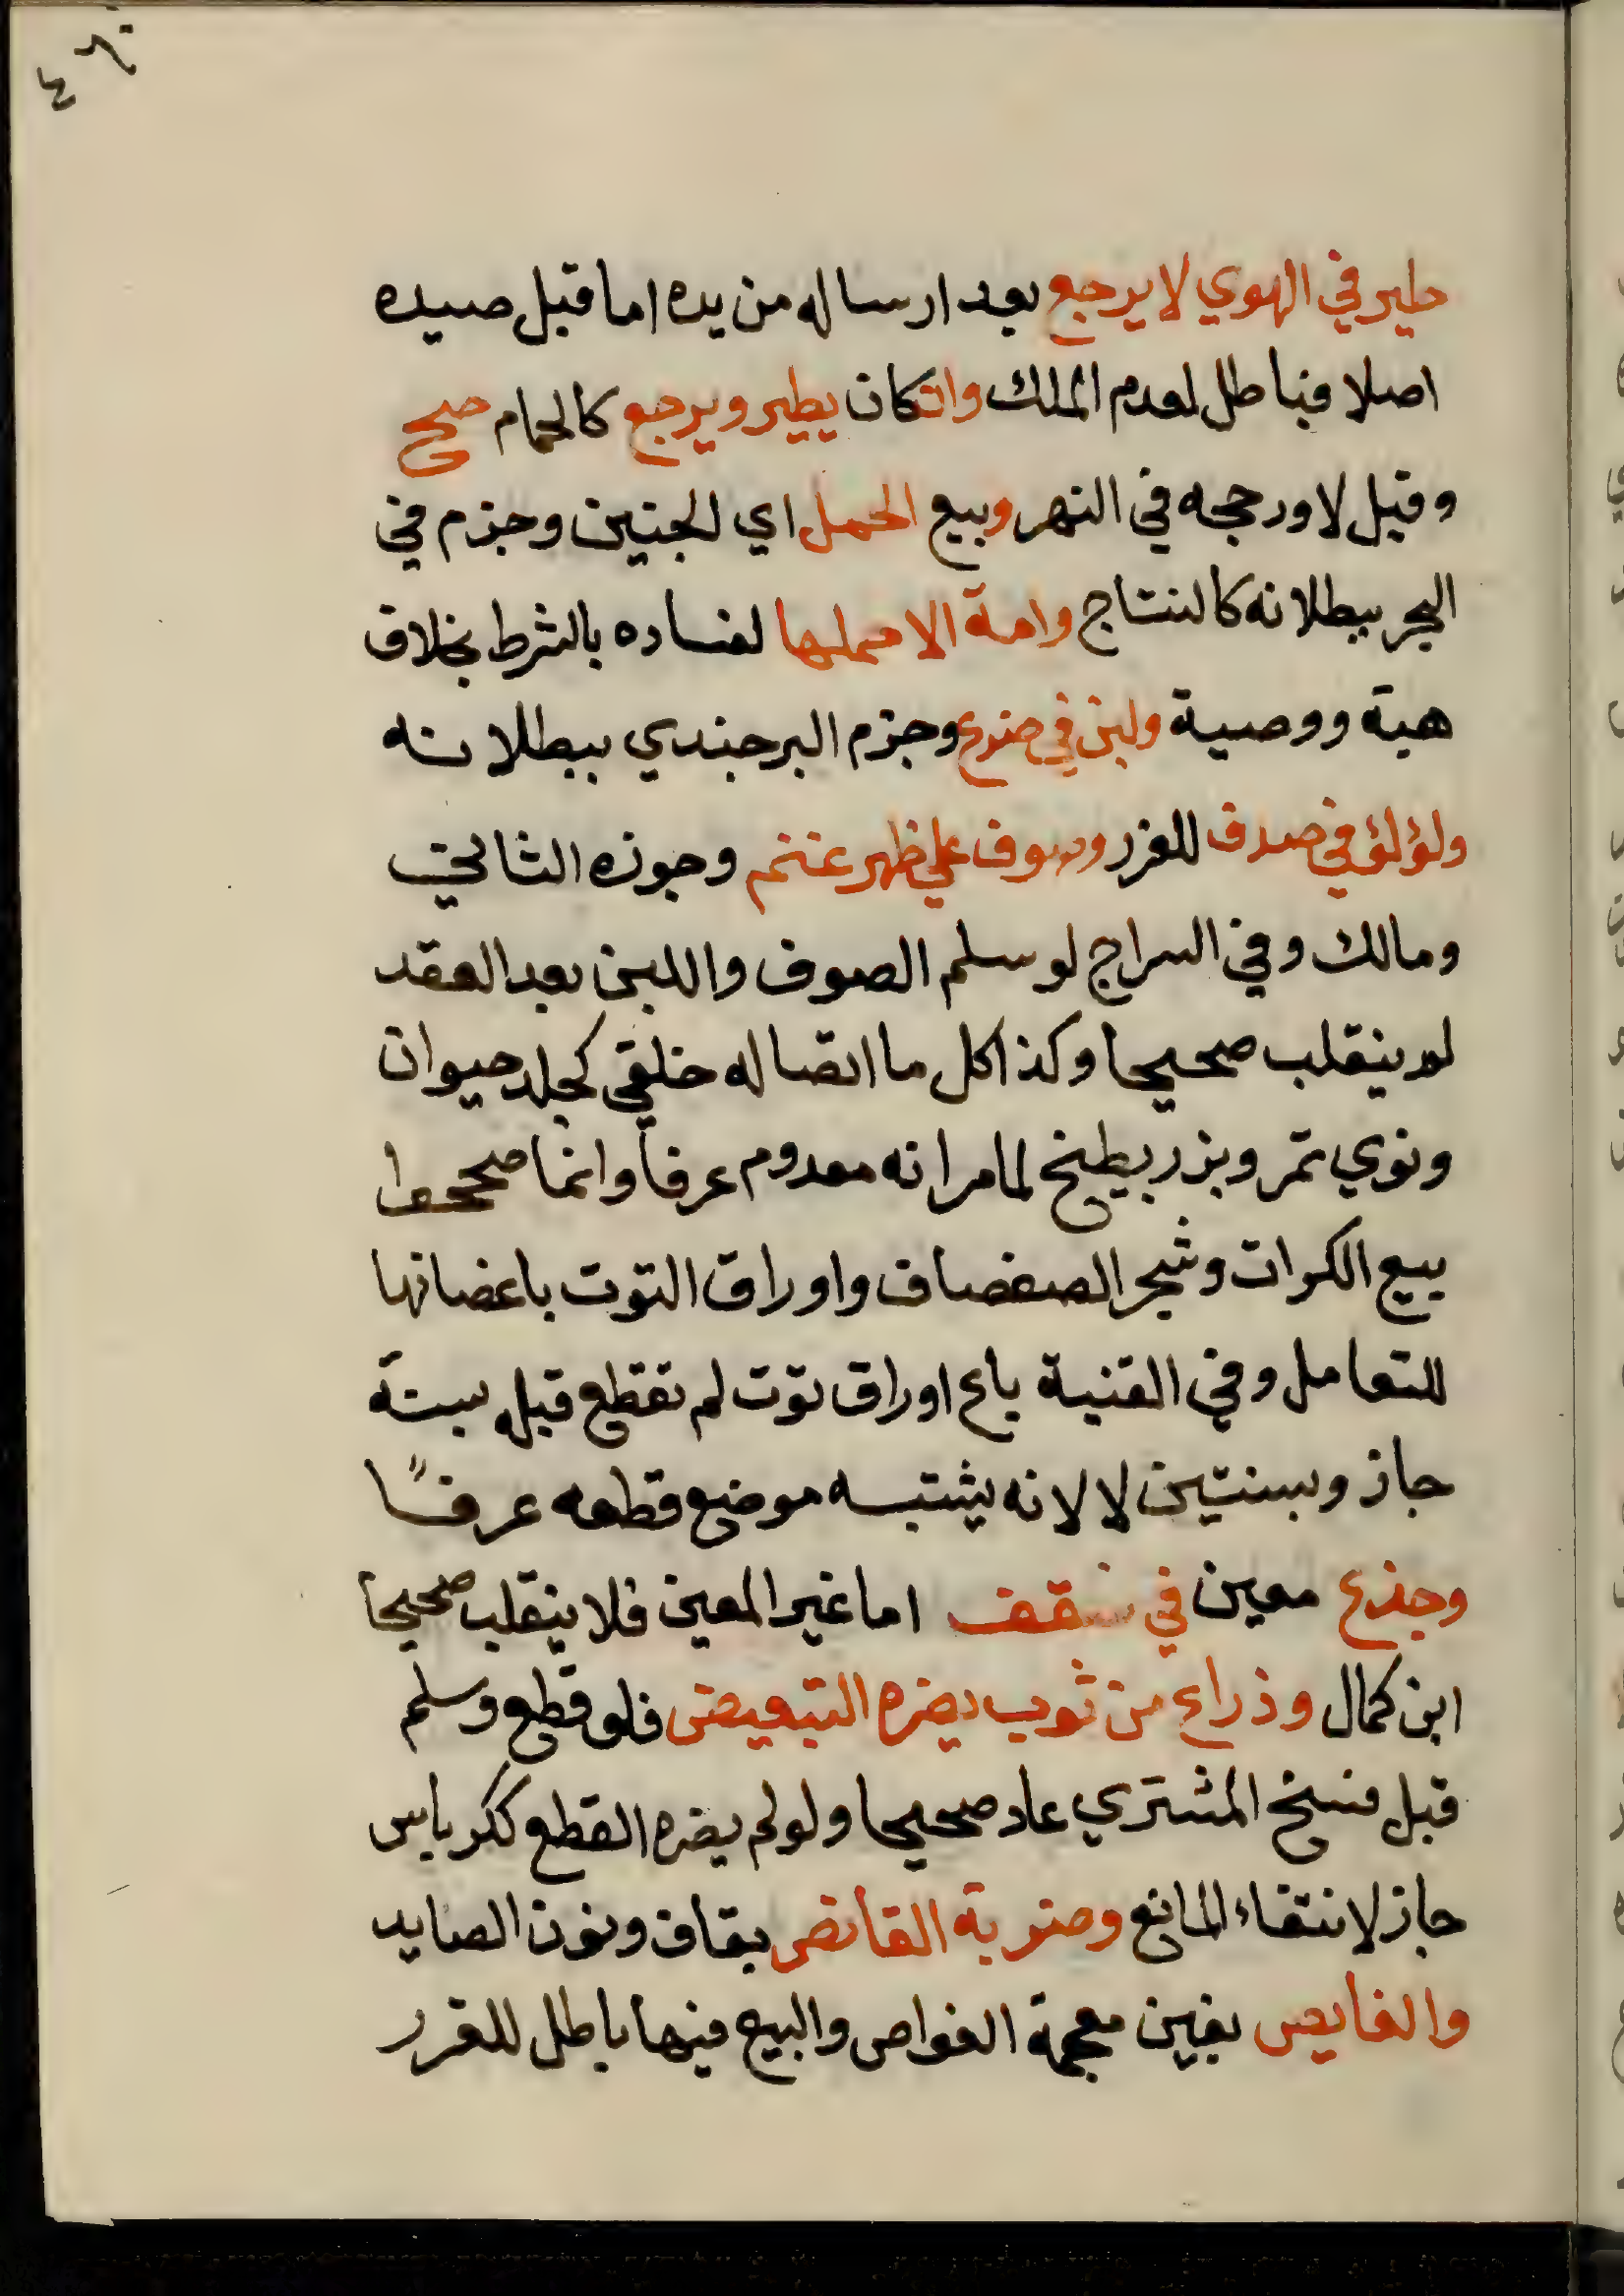 ٤٦٠
طير في الهوي لا يرجع بعد ارساله من يده اما قبل صيده
اصلا فباطل لعدم الملك وانكان يطير ويرجع كالحمام صح
وقيل لا ورجحه في النهر وبيع الحمل اي الجنين وجزم في
البحر ببطلانه كالنتاج وامة الا حملها لفساده بالشرط بخلاف
هبة ووصية ولبن في ضرع وجزم البرجندي ببطلانه
ولؤلؤ في صدف للغرر وصوف علي ظهر غنم وجوزه الثاني
ومالك وفي السراج لو سلم الصوف واللبن بعد العقد
لم ينقلب صحيحا وكذا كل ما اتصاله خلقي كجلد حيوان
ونوي تمر وبزر بطيخ لما مر انه معدوم عرفا وانما صححوا
بيع الكراث وشجر الصفصاف واوراق التوت باغصانها
للتعامل وفي القنية باع اوراق توت لم تقطع قبله بسنة
جاز وبسنتين لا لانه يشتبه موضع قطعه عرفًا
وجذع معين في سقف اما غير المعين فلا ينقلب صحيحا
ابن كمال وذراع من ثوب يضره التبعيض فلو قطع وسلم
قبل فسخ المشتري عاد صحيحا ولو لم يضره القطع ككرباس
جاز لانتفاء المانع وضربة القانص بقاف ونون الصايد
والغايص بغين معجمة الغواص والبيع فيها باطل للغرر